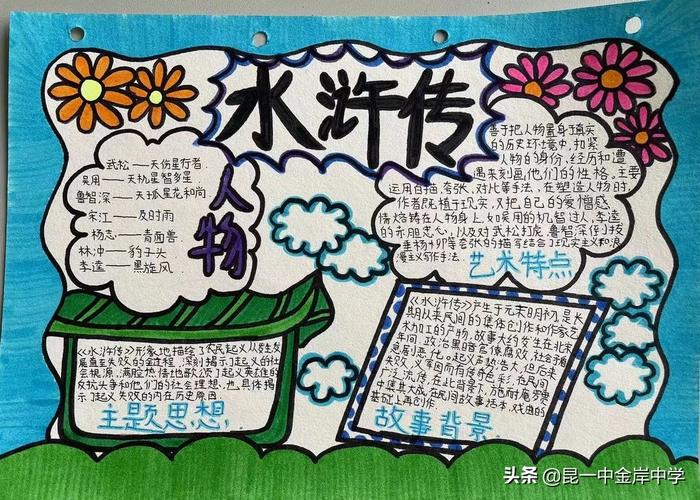 水浒传
武松——天伤星行者.
吴用——天机星智多星
鲁智深——天孤星花和尚
宋江——及时雨
杨志——青面兽
林冲——豹子头
李逵——黑旋风
人物
善于把人物置身于真实
的历史环境中,扣紧
人物的身份、经历和遭
遇来刻画他们的性格,主要
运用白描、夸张、对比等手法,在塑造人物时,
作者既植于现实,又把自己的爱憎感
情熔铸在人物身上,如吴用的机智过人,李逵
的赤胆忠心,以及对武松打虎,鲁智深倒拔
垂杨柳等夸张的描写结合了现实主义和浪
漫主义写作手法.
艺术特点
《水浒传》形象地描绘了农民起义从发生发
展直至失败的全过程,深刻揭示了起义的社
会根源,满腔热情地歌颂了起义英雄的
反抗斗争和他们的社会理想,也具体揭
示了起义失败的内在历史原因.
主题思想.
《水浒传》产生于元末明初,是长
期以来民间的集体创作和作家艺
术加工的产物,故事大约发生在北宋
年间,政治黑暗官僚腐败,社会矛盾
起义声势浩大,但后来
失败,义军因而有传奇色彩,在民间
广泛流传,在此背景下,施耐庵梦
中集其大成,在民间故事话本、戏曲的
基础上再创作.
故事背景.
头条 @昆一中金岸中学